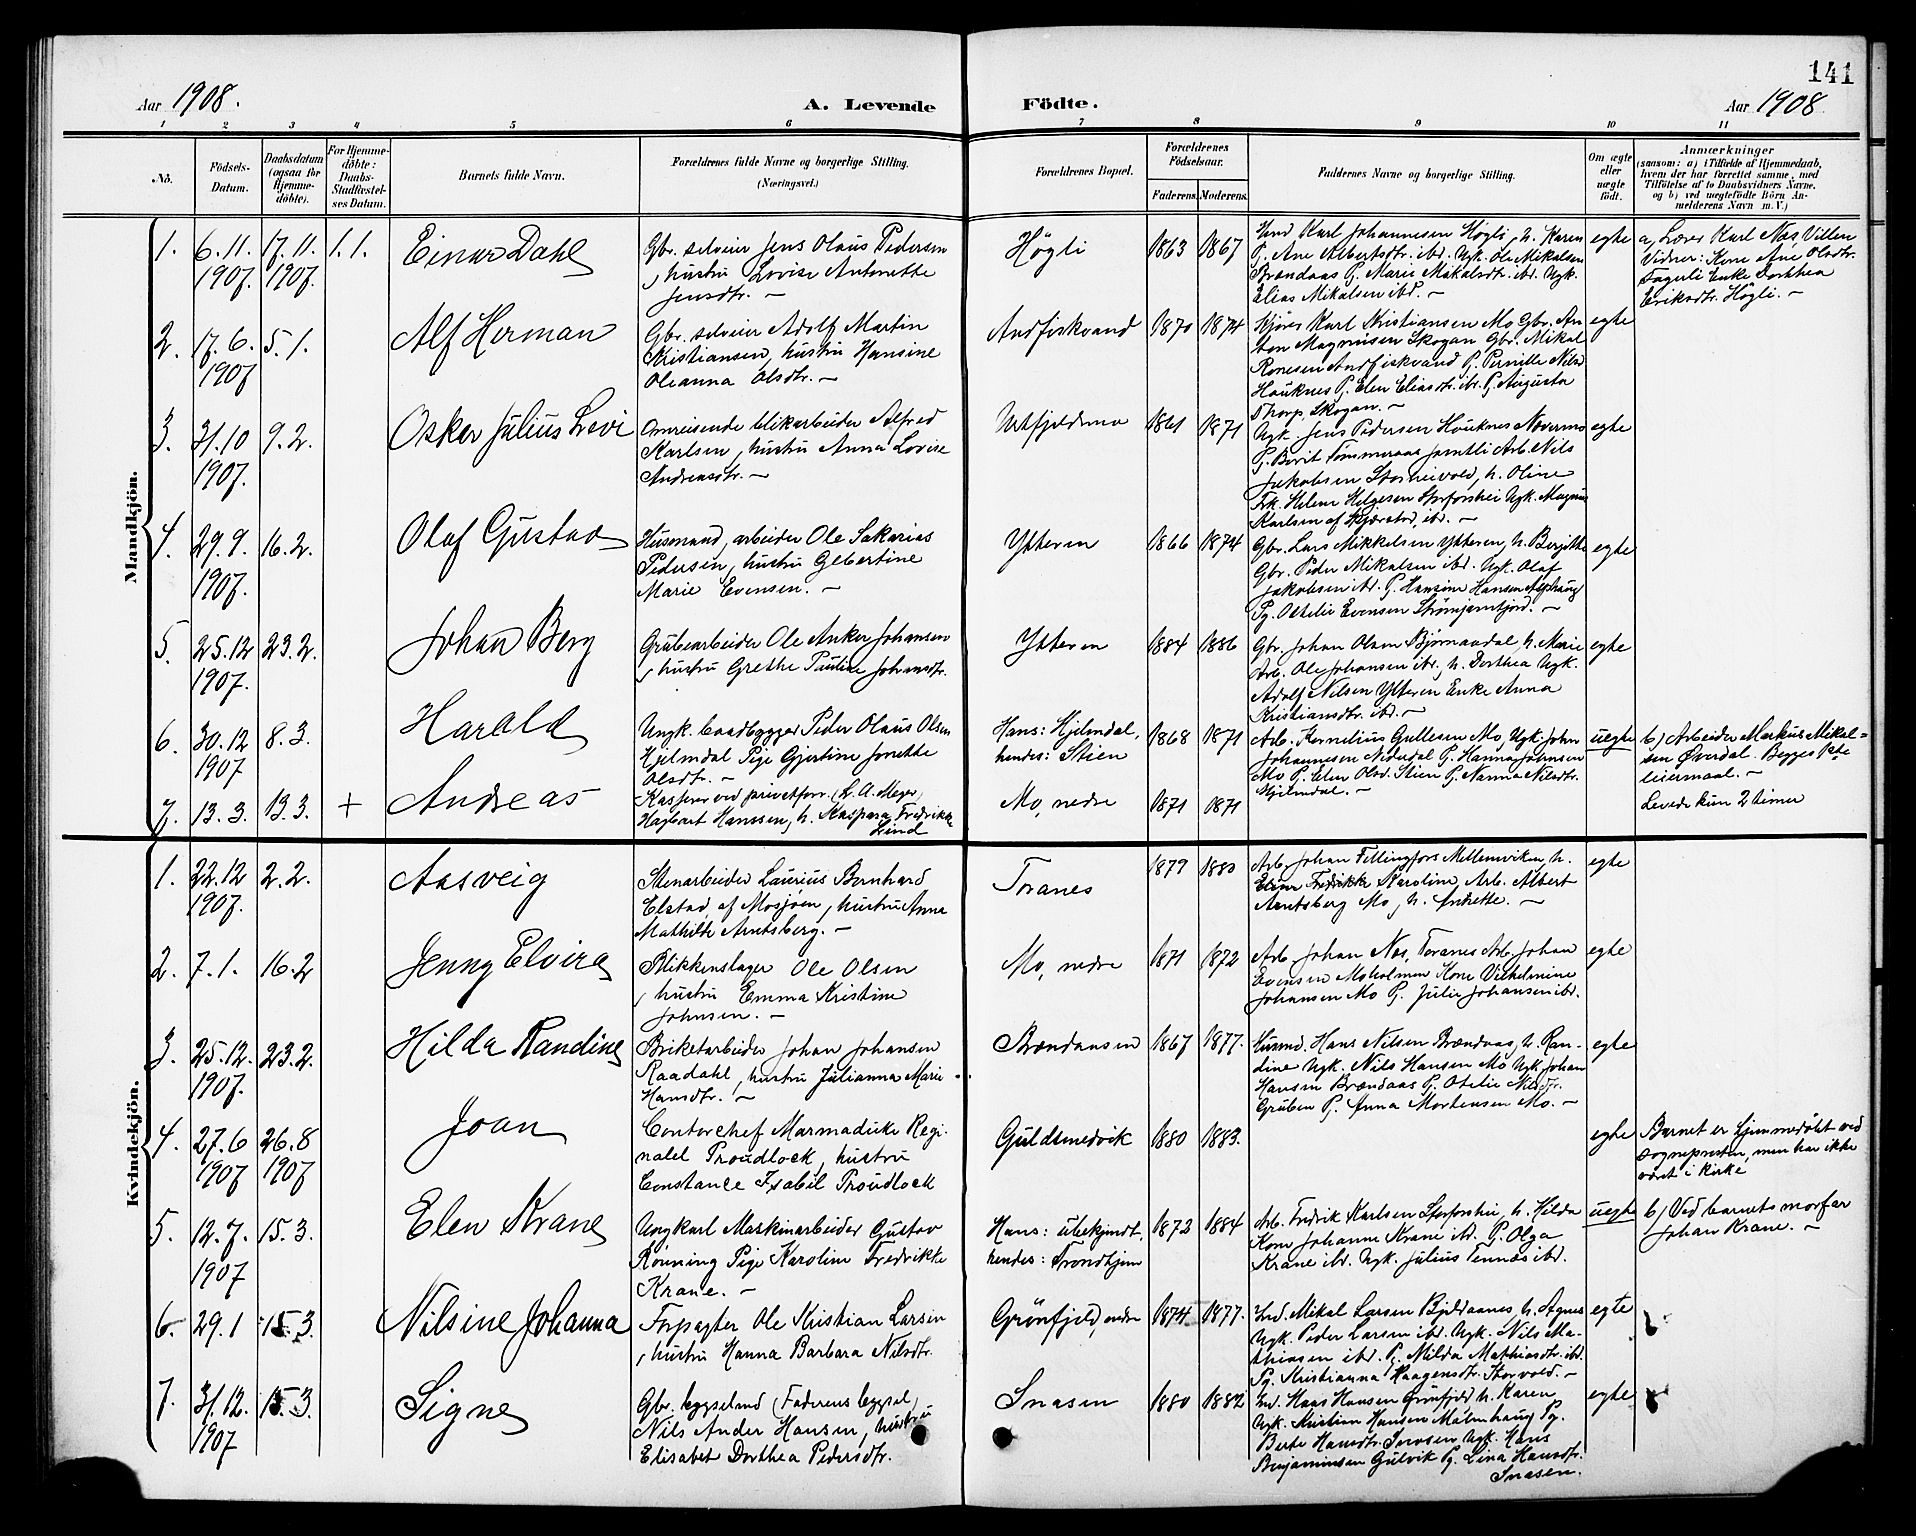 141
Aar 1908. A. Levende Födte. Aar 1908
1 2 3 4 5 6 7 8 9 10 11
No.
Födsels-Datum.
Daabsdatum (ogsaa for Hjemme-döbte).
For Hjemme-döbte: Daabs-Stadfæstel-ses Datum.
Barnets fulde Navn.
Forældrenes fulde Navne og borgerlige Stilling.
(Næringsvei.)
Forældrenes Bopæl.
Forældrenes Födselsaar.
Faderens. Moderens.
Faddernes Navne og borgerlige Stilling.
Om ægte eller uægte født.
Anmærkninger
(saasom: a) i Tilfælde af Hjemmedaab,
hvem der har forrettet samme, med
Tilföielse af to Daabsvidners Navne,
og b) ved uegtefödte Börn An-
melderens Navn m. V.)
Mandkjön.
1. 6.11. 1907. 17.11. 1907. 1.1. Einar Dahl
Gbr. selveier Jens Olaus Pedersen
, hustru Lovise Antonette
Jensdtr. —
Högli 1863 1867
Ind Karl Johannesen Högli, h. Karen
P. Ane Albertsdtr. ibd. Ugk. Ole Mikalsen
Brændaas P. Marie Mikalsdtr. ibd. Ugk.
Elias Mikalsen ibd. —
egte
a, Lærer Karl Nes, Villen
Vidner: Kone Ane Olsdtr.
Fagerli Enke Dorthea
Eriksdtr. Högli. —
2. 17.6. 1907 5.1. Alf Herman
Gbr. selveier Adolf Martin
Kristiansen, hustru Hansine
Oleanna Olsdtr. —
Andfiskvand 1870 1874
Karl Kristiansen Mo Gbr. An
ton Magnusen Skogan Gbr. Mikal
Andfiskvand P. Pernille Nilsd
Houknes P. Elen Eliasdtr. ib. P. Augusta
Thorp, Skogan. —
egte
3. 31.10 1907. 9.2. Oskar Julius Levi
Omreisende blikarbeider Alfred
Karlsen, hustru Anna Lovise
Andreasdtr. —
Urtfjeldmo 1861 1871
Ugk. Jens Pedersen Houknes
P. Berit Tømmeraas Jamtli Arb. Nils
Jakobsen Storheivold, h. Oline
Frk. Helene Helgesen Storforshei Ugk. Magnus
Karlsen af Skjærstad, ibd. —
egte
4. 29.9. 1907. 16.2. Olaf Gustav
Husmand, arbeider Ole Sakarias
Pedersen, hustru Gjebertine
Marie Evensen. —
Ytteren 1866 1874
Gbr. Lars Mikkelsen Ytteren, h. Bergitte
Gbr. Peder Mikalsen ibd. Ugk. Olaf
Jakobsen ibd. P. Hansine Hansen
Pg. Othelie Evensen —
egte
5. 25.12 1907. 23.2. Johan Berg
Grubearbeider Ole Anker Johansen
, hustru Grethe Pauline Johansdtr.
Ytteren 1884 1886
Gbr. Johan Olsen Bjørnaadal, h. Marie
Arb. Ole Johansen ibd., h. Dorthea Ugk.
Adolf Nilsen Ytteren Enke Anna
Kristiansdtr. ibd. —
egte
6. 30.12 1907 8.3. Harald
Ungk. baadbygger Peder Olaus Olsen
Hjelmdal Pige Gjertine Jonette
Olsdtr. —
Hans: Hjelmdal,
hendes: Stien
1868 1871
Arb. Kornelius Gullesen Mo, Ugk. John
Johannesen Nederdal P. Hanna Johnsen
Mo P. Elen Olsd. Stien P. Nanna Nilsdtr.
Hjelmdal. —
uegte
b) Arbeider Markus Mikal-
sen Øverdal. Begges 1ste
leiermaal. —
7. 13.3. 13.3. + Andreas
Kasserer ved privatforr. (L. A. Meyer)
Hagbart Hanssen, h. Kaspara Fredrikke
Lind
Mo, nedre 1871 1871
Levede kun 2 timer
Kvindekjön.
1. 22.12 1907. 2.2. Aasveig
Stenarbeider Laurius Bernhard
Elstad, af Mosjøen, hustru Anna
Mathilde Arntsberg. —
Toranes 1879 1880
Arb. Johan Fellingfors Mellemviken, h.
Karoline, Arb. Albert
Arntsberg Mo, h. —
egte
2. 7.1. 16.2 Jenny Elvira
Blikkenslager Ole Olsen
, hustru Emma Kristine
Johnsen. —
Mo, nedre 1871 1872
Arb. Johan Nes, Toranes Arb. Johan
Evensen Moholmen Kone Vilhelmine
Johansen Mo P. Julie Johansen ibd.
egte
3. 25.12. 1907. 23.2. Hilda Randine
Briketarbeider Johan Johansen
Raadahl, hustru Julianna Marie
Hansdtr. —
Brændaasen 1867 1877.
Husmd. Hans Nilsen Brændaas, h. Ran-
dine Ugk. Nils Hansen Mo Ugk. Johan
Hansen Brændaas P. Otelie Nilsdtr.
Gruben P. Anna Mortensen Mo. —
egte
4. 27.6 1907 26.8 1907 Joan
Contorchef Marmaduke Regi-
nald Proudlock, hustru
Constance Isabil Proudlock
Guldsmedvik 1880 1883.
egte
Barnet er hjemmedøbt ved
sognepresten, men har ikke
været i kirke
5. 12.7. 1907 15.3. Elen Krane
Ungkarl Maskinarbeider Gustav
Rønning Pige Karoline Fredrikke
Krane. —
Hans: ubekjendt,
hendes: Trondhjem
1872 1884
Arb. Fredrik Karlsen Storforshei, h. Hilda
Kone Johanne Krane ibd. P. Olga
Krane ibd. Ugk. Julius Tennes ibd.
uegte
b) Ved barnets morfar
Johan Krane. —
6. 29.1 15.3 Nilsine Johanna
Forpagter Ole Kristian Larsen
, hustru Hanna Barbara Nilsdtr.
Grønfjeld, nedre 1874 1877.
Ind. Mikal Larsen Bjeldaanes, h. Agnes
Ugk. Peder Larsen ibd. Ugk. Nils Ma-
thiasen ibd. P. Milda Mathiasdtr. ibd.
Pg. Kristianna Haagensdtr. Storvold. —
egte
7. 31.12. 1907 15.3. Signe
Gbr. bygselmd (Faderens bygsel)
Nils Ander Hansen, hustru
Elisabet Dorthea Pedersdtr.
Snasen 1880 1882
Ind. Hans Hansen Grønfjeld h. Karen
Ugk. Kristian Hansen Malmhaug Pg.
Berte Hansdtr. Snasen Ugk. Hans
Benjaminsen Gulvik Pg. Lina Hansdtr.
Snasen.
egte